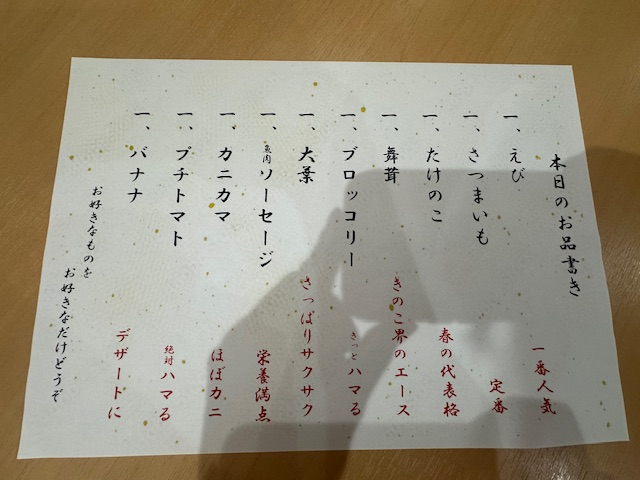 本日のお品書き
一、えび 一番人気
一、さつまいも 定番
一、たけのこ 春の代表格
一、舞茸 きのこ界のエース
一、ブロッコリー きっとハマる
一、大葉 さっぱりサクサク
一、魚肉ソーセージ 栄養満点
一、カニカマ ほぼカニ
一、プチトマト 絶対ハマる
一、バナナ デザートに
お好きなものを
お好きなだけどうぞ